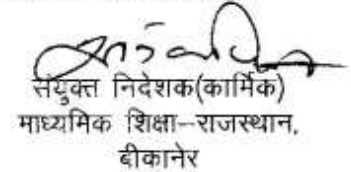 संयुक्त निदेशक(कार्मिक)
माध्यमिक शिक्षा–राजस्थान,
बीकानेर